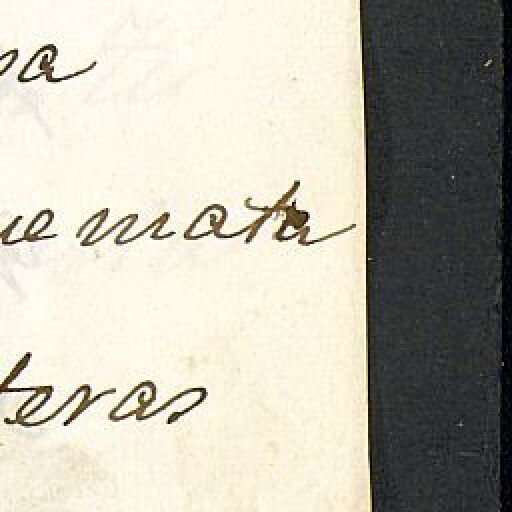 sa
ue mata
teras